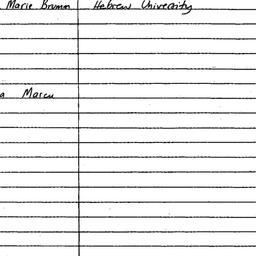 Marie Brumm Hebrew University
a Marcu